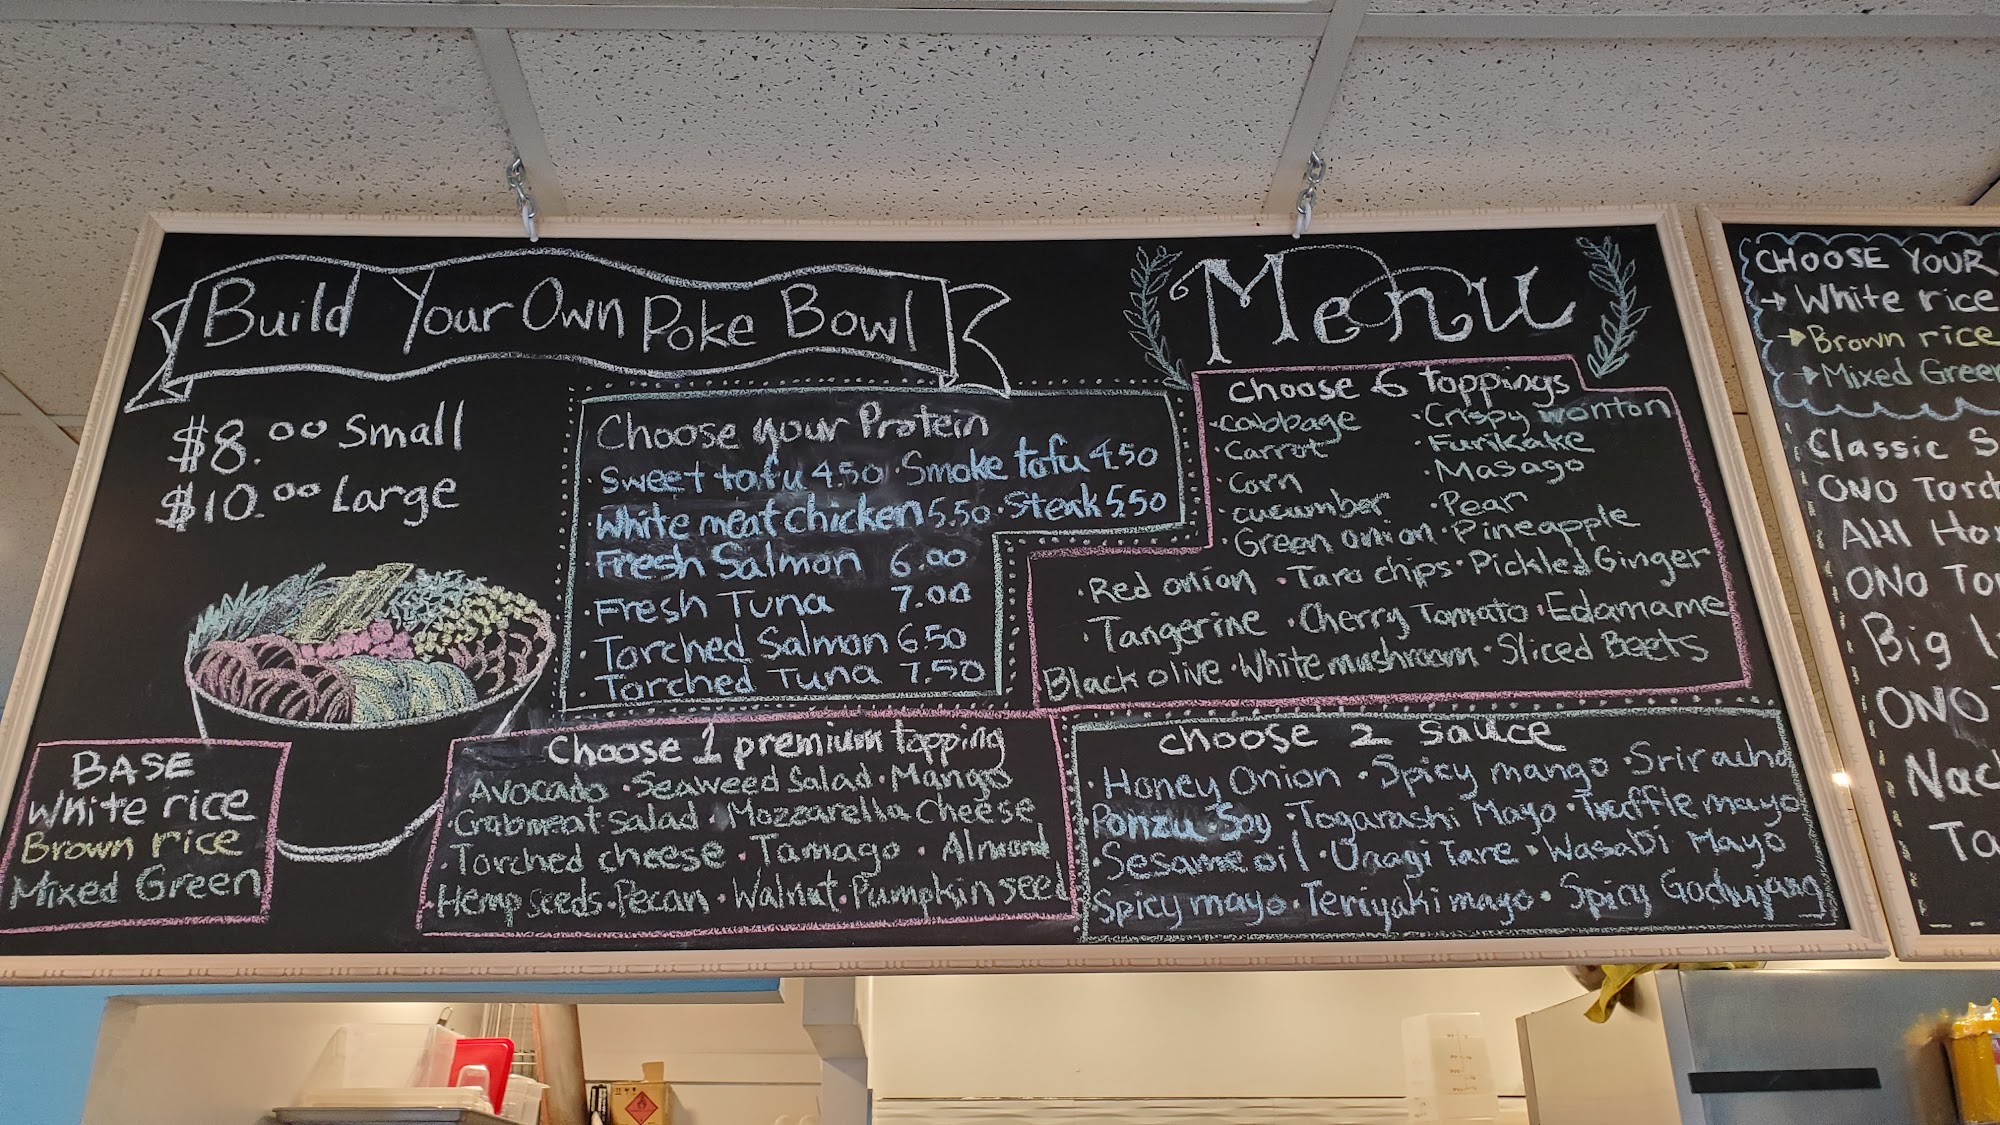 Build Your Own Poke Bowl
$8.00 Small
$10.00 Large
BASE
White rice
Brown rice
Mixed Green
Choose your Protein
· Sweet tofu 4.50 · Smoke tofu 4.50
White meat chicken 5.50 · Steak 5.50
· Fresh Salmon 6.00
· Fresh Tuna 7.00
· Torched Salmon 6.50
· Torched Tuna 7.50
Choose 1 premium topping
· Avocado · Seaweed Salad · Mango
· Crabmeat Salad · Mozzarella Cheese
· Torched cheese · Tamago · Almond
· Hemp seeds · Pecan · Walnut · Pumpkin seed
Menu
Choose 6 toppings
· Cabbage · Crispy wonton
· Carrot · Furikake
· Corn · Masago
· cucumber · Pear
· Green onion · Pineapple
· Red onion · Taro chips · Pickled Ginger
· Tangerine · Cherry Tomato · Edamame
Black olive · White mushroom · Sliced Beets
choose 2 sauce
· Honey Onion · Spicy mango · Sriracha
Ponzu Soy · Togarashi Mayo · Truffle mayo
· Sesame oil · Unagi Tare · Wasabi Mayo
· Spicy mayo · Teriyaki mayo · Spicy Gochujang
CHOOSE YOUR
→ White rice
→ Brown rice
→ Mixed Green
Classic S
ONO Torch
AHI Ho
ONO To
Big I
ONO
Nac
Ta